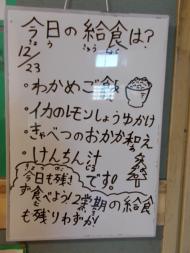 今日の給食は?
12/23
・わかめご飯
・イカのレモンしょうゆかけ
・きゃべつのおかか和え
・けんちん汁
です。
今日も残さず食べよう!2学期の給食も残りわずか!